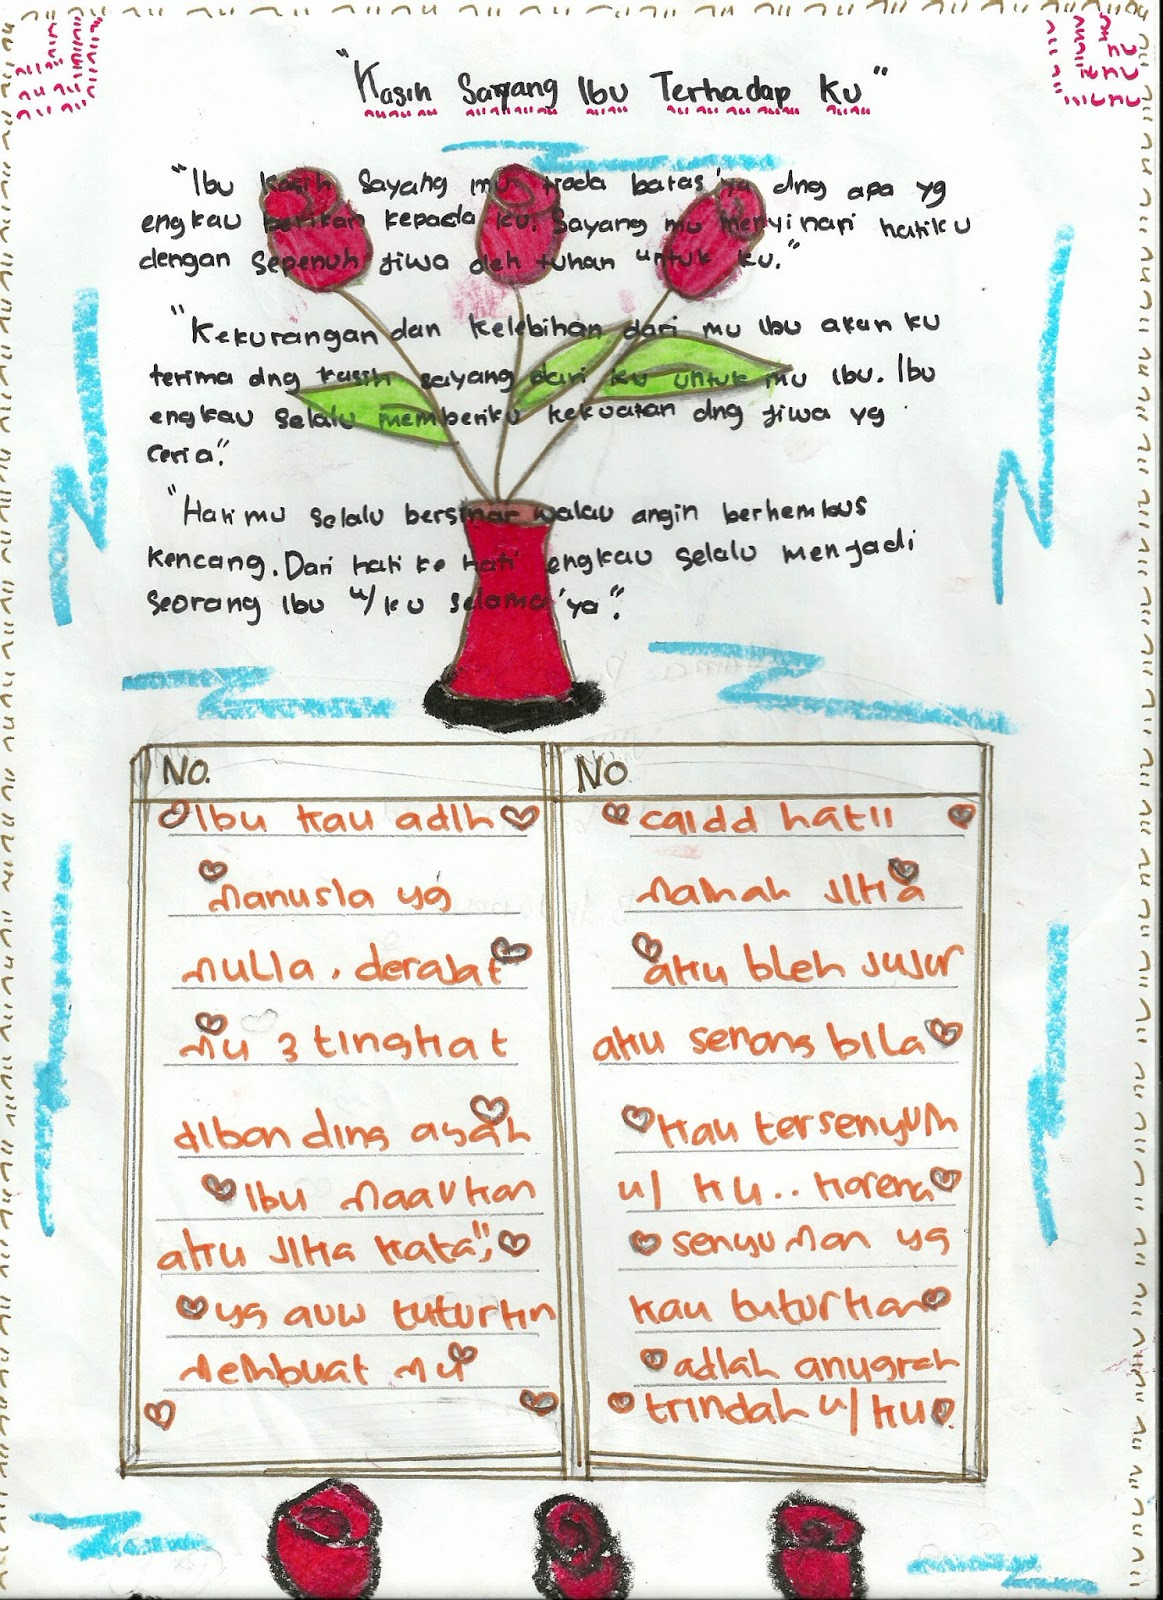 "Kasih Sayang Ibu Terhadap Ku"
"Ibu kasih sayang mu trada batas'ya dng apa yg
engkau berikan kepada ku. Sayang mu menyinari hatiku
dengan sepenuh jiwa oleh tuhan untuk ku."
"Kekurangan dan kelebihan dari mu ibu akan ku
terima dng kasih sayang dari ku untuk mu ibu. Ibu
engkau selalu memberiku kekuatan dng jiwa yg
ceria".
"Hati mu selalu bersinar walau angin berhembus
kencang. Dari hati ke hati engkau selalu menjadi
seorang ibu u/ku selama'ya".
No.
Ibu kau adlh
manusia yg
mulia, derajat
mu 3 tingkat
dibanding ayah
Ibu maavkan
aku jika kata",
yg auw tuturkn
membuat mu
No
hati
jika
aku bleh jujur
aku senang bila
kau tersenyum
u/ ku.. karena
senyuman yg
kau tuturkan
adlah anugrah
trindah u/ ku.